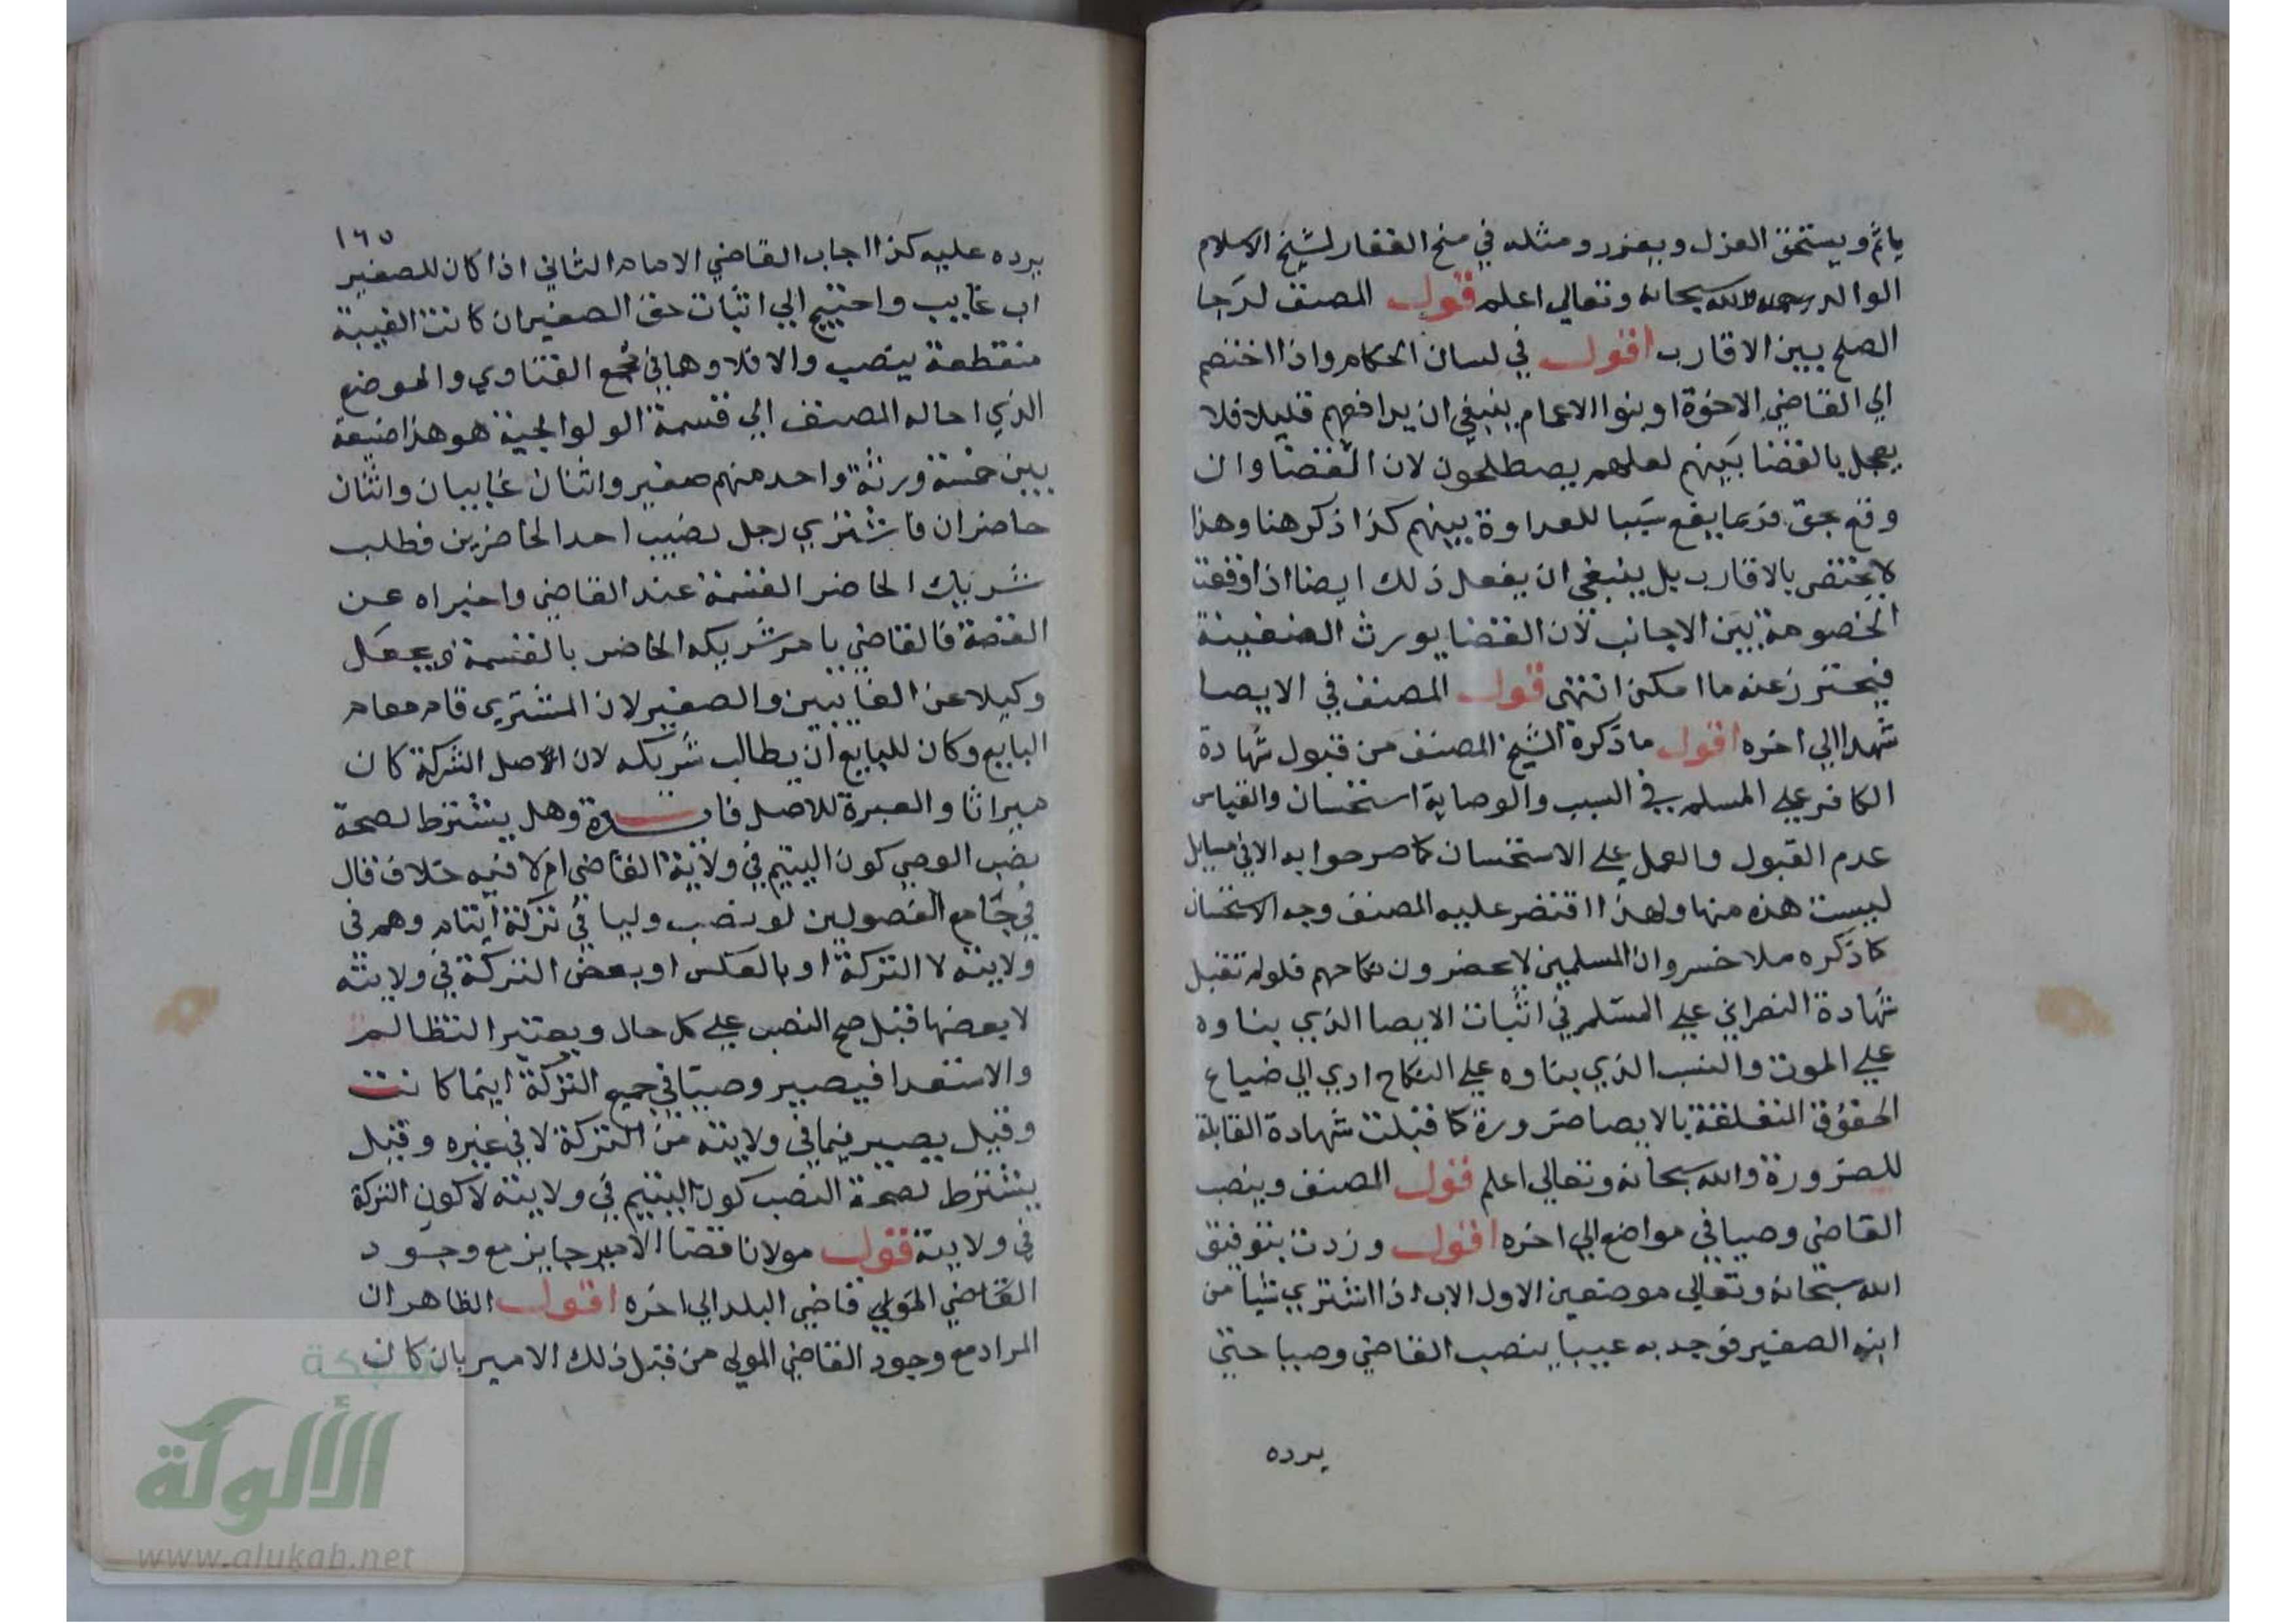 ياثم ويستحق العزل ويعزر ومثله في منح الغفار لشيخ الاسلام
الوالد رحمه الله سبحانه وتعالي اعلم قول المصنف لرجا
الصلح بين الاقارب اقول في لسان الحكام واذا اختصم
الي القاضي الاخوة او بنوا الاعمام ينبغي ان يدافعهم قليلا فلا
يعجل بالقضا بينهم لعلهم يصطلحون لان القضا وان
وقع بحق فربما يقع سببا للعداوة بينهم كذا ذكر هنا وهذا
لا يختص بالاقارب بل ينبغي ان يفعل ذلك ايضا اذا وقعت
الخصومة بين الاجانب لان القضا يورث الضغينة
فيحترز عنه ما امكن انتهي قول المصنف في الايصا
شهدا الي اخره اقول ما ذكره الشيخ المصنف من قبول شهادة
الكافر علي المسلم في السبب والوصاية استحسان والقياس
عدم القبول والعمل علي الاستحسان كما صرحوا به الا في مسايل
ليست هذه منها ولهذا اقتصر عليه المصنف وجه الاستحسان
كما ذكره ملا خسرو ان المسلمين لا يحضرون نكاحهم فلو لم تقبل
شهادة النصراني علي المسلم في اثبات الايصا الذي بناوه
علي الموت والنسب الذي بناوه علي النكاح ادي الي ضياع
الحقوق المتعلقة بالايصا ضرورة كما قبلت شهادة القابلة
للضرورة والله سبحانه وتعالي اعلم قول المصنف وينصب
القاضي وصيا في مواضع الي اخره اقول وزدت بتوفيق
الله سبحانه وتعالي موضعين الاول الاب اذا اشتري شيا من
ابنه الصغير فوجد به عيبا ينصب القاضي وصيا حتي
يرده
١٦٥
يرده عليه كذا اجاب القاضي الامام الثاني اذا كان للصغير
اب غايب واحتيج الي اثبات حق الصغير ان كانت الغيبة
منقطعة ينصب والا فلا وهما في مجمع الفتاوي والموضع
الذي احاله المصنف الي قسمة الولوالجية هو هذا ضيعة
بين خمسة ورثة واحد منهم صغير واثنان غايبان واثنان
حاضران فاشتري رجل نصيب احد الحاضرين فطلب
شريك الحاضر القسمة عند القاضي واخبراه عن
القصة فالقاضي يامر شريكه الحاضر بالقسمة ويجعل
وكيلا عن الغايبين والصغير لان المشتري قام مقام
البايع وكان للبايع ان يطالب شريكه لان الاصل الشركة كان
ميراثا والعبرة للاصل فايدة وهل يشترط لصحة
نصب الوصي كون اليتيم في ولاية القاضي ام لا فيه خلاف قال
في جامع الفصولين لو نصب وليا في تركة ايتام وهم في
ولايته لا التركة او بالعكس او بعض التركة في ولايته
لا بعضها قيل صح النصب علي كل حال ويعتبر التظالم
والاستعدا فيصير وصيا في جميع التركة اينما كانت
وقيل يصير فيما في ولايته من التركة لا في غيره وقيل
يشترط لصحة النصب كون اليتيم في ولايته لا كون التركة
في ولايته قول مولانا قضا الامير جايز مع وجود
القاضي المولي قاضي البلد الي اخره اقول الظاهر ان
المراد مع وجود القاضي المولي من قبل ذلك الامير بان كان
شبكة
الألوكة
www.alukah.net